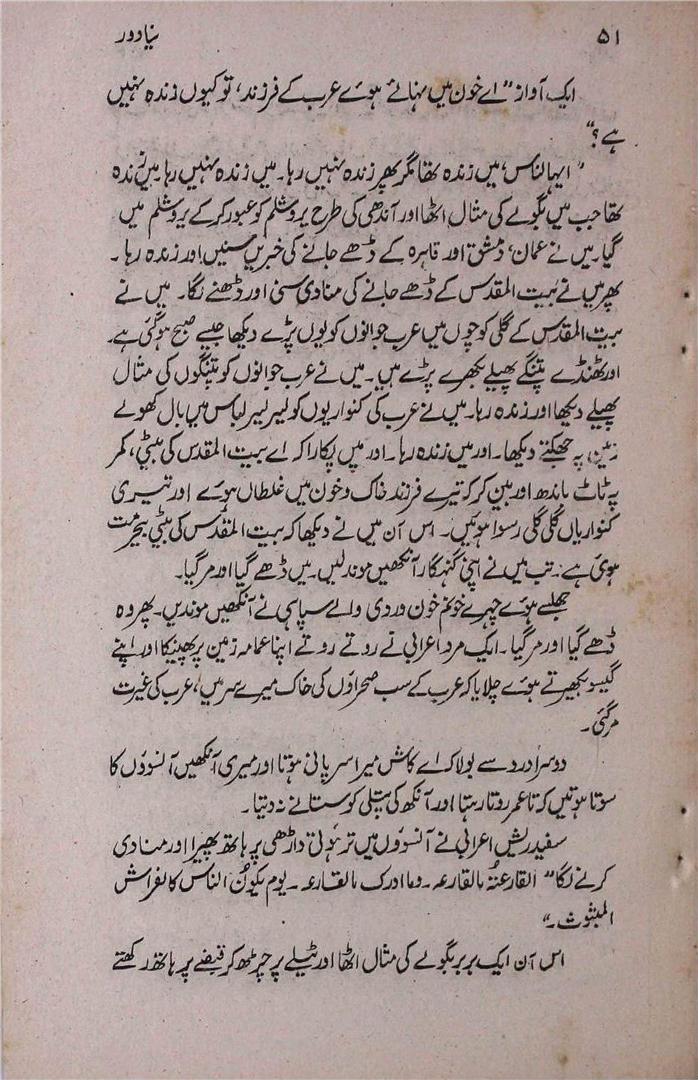 ۵۱ نیا دور
ایک آواز "اے خون میں نہائے ہوئے عرب کے فرزند، تو کیوں زندہ نہیں
ہے؟"
"ایہا الناس، میں زندہ تھا مگر پھر زندہ نہیں رہا۔ میں زندہ نہیں رہا۔ میں زندہ
تھا جب میں بگولے کی مثال اٹھا اور آندھی کی طرح یروشلم کو عبور کر کے یروشلم میں
گیا۔ میں نے عمان، دمشق اور قاہرہ کے ڈھے جانے کی خبریں سنیں اور زندہ رہا۔
پھر میں نے بیت المقدس کے ڈھے جانے کی منادی سنی اور ڈھنے لگا۔ میں نے
بیت المقدس کے گلی کوچوں میں عرب جوانوں کو یوں پڑے دیکھا جیسے صبح ہو گئی ہے۔
اور ٹھنڈے پتنگے پھیلے بکھرے پڑے ہیں۔ میں نے عرب جوانوں کو پتنگوں کی مثال
پھیلے دیکھا اور زندہ رہا۔ میں نے عرب کی کنواریوں کو لیر لیر لباس میں بال کھولے
زمین پہ جھکتے دیکھا۔ اور میں زندہ رہا۔ اور میں پکارا کہ اے بیت المقدس کی بیٹی، کمر
پہ ٹاٹ باندھ اور بین کر کہ تیرے فرزند خاک و خون میں غلطاں ہوئے اور تیری
کنواریاں گلی گلی رسوا ہوئیں۔ اس آن میں نے دیکھا کہ بیت المقدس کی بیٹی بیحرمت
ہوئی ہے۔ تب میں نے اپنی گنہگار آنکھیں موند لیں۔ میں ڈھے گیا اور مر گیا۔
جھلسے ہوئے چہرے خونم خون وردی والے سپاہی نے آنکھیں موندیں۔ پھر وہ
ڈھے گیا اور مر گیا۔ ایک مرد اعرابی نے روتے روتے اپنا عمامہ زمین پر پھینکا اور اپنے
گیسو بکھیرتے ہوئے چلایا کہ عرب کے سب صحراؤں کی خاک میرے سر میں، عرب کی غیرت
مر گئی۔
دوسرا درد سے بولا کہ اے کاش میرا سر پانی ہوتا اور میری آنکھیں آنسوؤں کا
سوتا ہوتیں کہ تا عمر روتا رہتا اور آنکھ کی پتلی کو ستانے نہ دیتا۔
سفید ریش اعرابی نے آنسوؤں میں تر ہوتی داڑھی پر ہاتھ پھیرا اور منادی
کرنے لگا "القارعۃُ مالقارعہ۔ وما ادرک مالقارعہ۔ یوم یکونُ الناس کالفراش
المبثوث۔"
اس آن ایک بربر بگولے کی مثال اٹھا اور ٹیلے پر چڑھ کر قبضے پر ہاتھ رکھتے